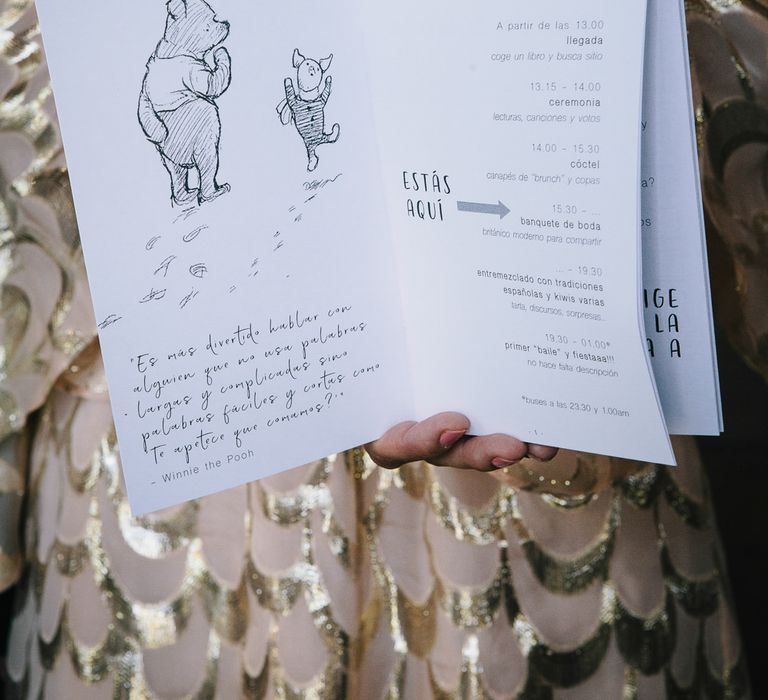 "Es más divertido hablar con
alguien que no usa palabras
largas y complicadas sino
palabras fáciles y cortas como
Te apetece que comamos?'"
- Winnie the Pooh
A partir de las 13.00
llegada
coge un libro y busca sitio
13.15 - 14.00
ceremonia
lecturas, canciones y votos
14.00 - 15.30
cóctel
canapés de "brunch" y copas
ESTÁS
AQUÍ
15.30 - ...
banquete de boda
británico moderno para compartir
... - 19.30
entremezclado con tradiciones
españolas y kiwis varias
tarta, discursos, sorpresas...
19.30 - 01.00*
primer "baile" y fiestaaa!!!
no hace falta descripción
*buses a las 23.30 y 1.00am
IGE
LA
A A